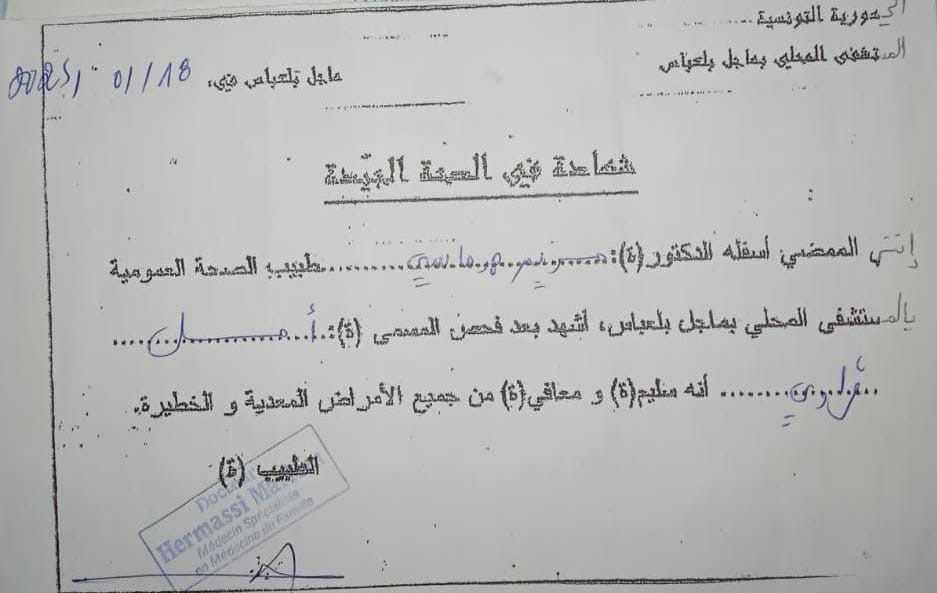 الجمهورية التونسية
المستشفى المحلي بماجل بلعباس
ماجل بلعباس في: 18/01/2025
شهادة في الصحة الجيّدة
إنني الممضي أسفله الدكتور(ة): ........ طبيب الصحة العمومية
بالمستشفى المحلي بماجل بلعباس، أشهد بعد فحص المسمى (ة): .........
......... أنه سليم(ة) و معافي(ة) من جميع الأمراض المعدية و الخطيرة.
الطبيب (ة)
Docteur
Hermassi
Médecin Spécialiste
en Médecine de Famille